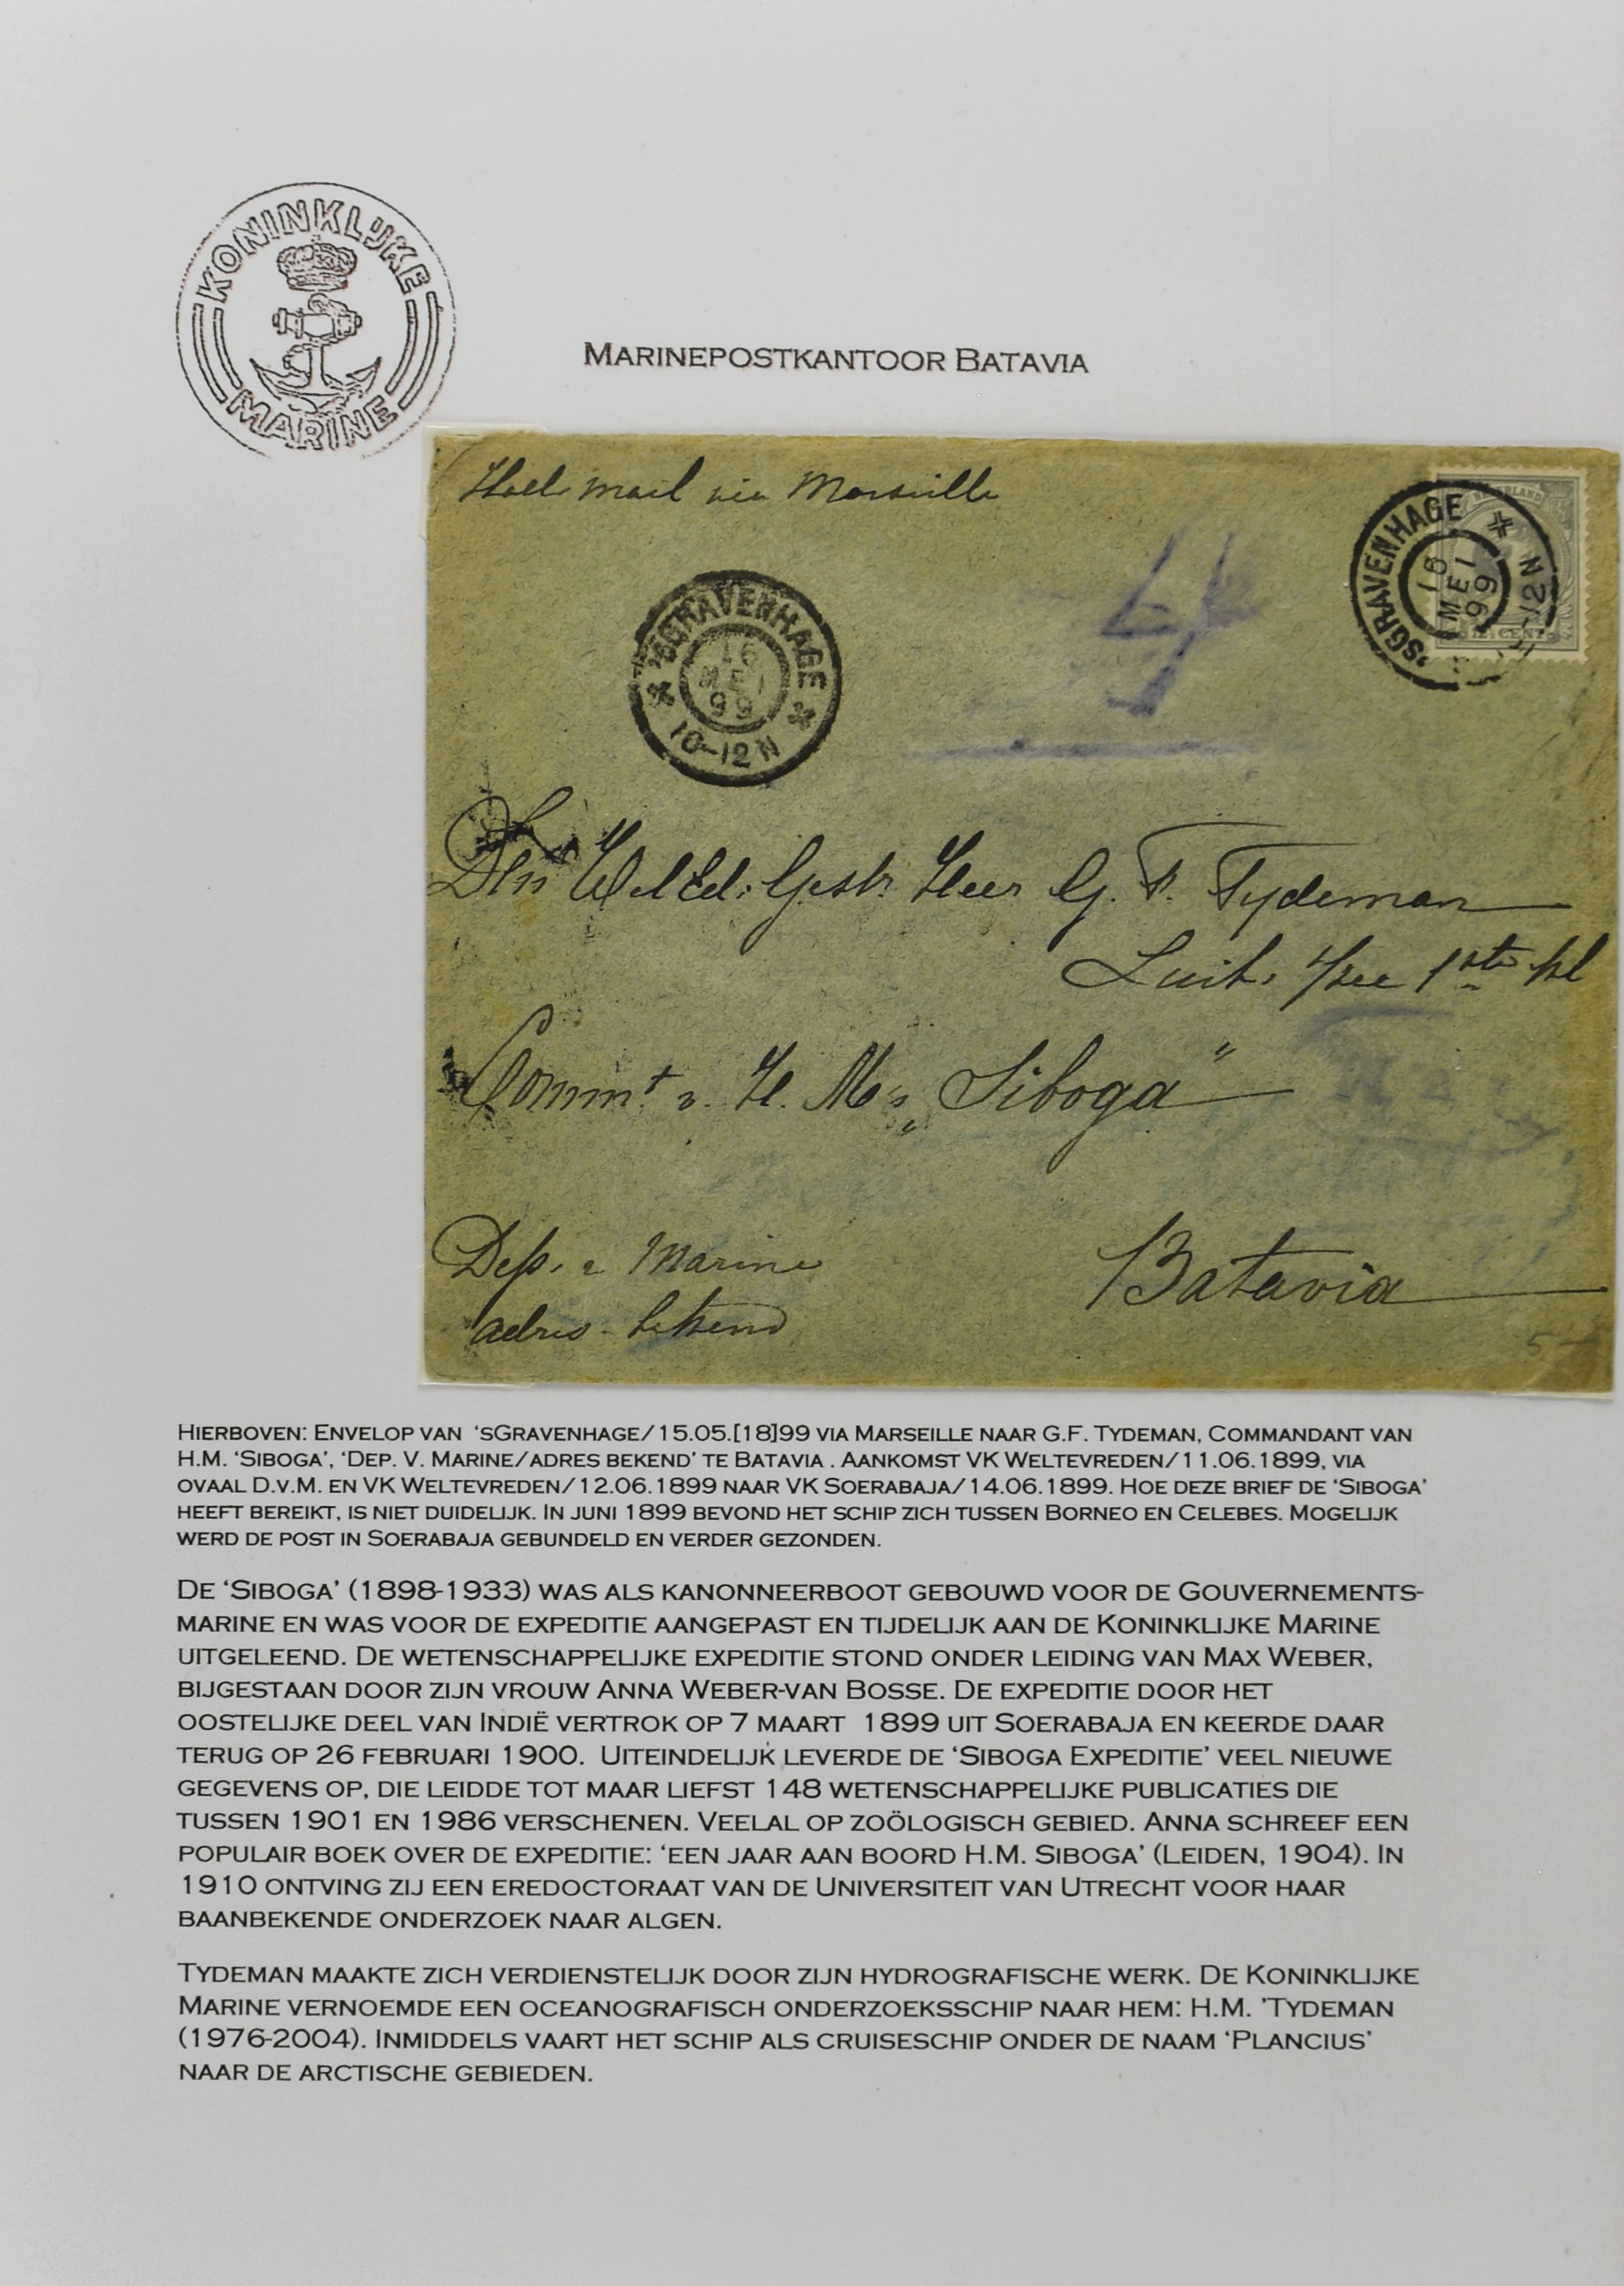 KONINKLIJKE
MARINE
MARINEPOSTKANTOOR BATAVIA
Holl. mail via Marseille
'SGRAVENHAGE
16
MEI
99
10-12N
NEDERLAND
'SGRAVENHAGE
16
MEI
99
10-12N
12½ CENT
Den WelEd: Gestr. Heer G. F. Tydeman
Luit. t/zee 1ste kl
Commt. v. H. M. „Siboga"
Dep. v Marine
adres bekend
Batavia
5-
HIERBOVEN: ENVELOP VAN 'SGRAVENHAGE/15.05.[18]99 VIA MARSEILLE NAAR G.F. TYDEMAN, COMMANDANT VAN
H.M. 'SIBOGA', 'DEP. V. MARINE/ADRES BEKEND' TE BATAVIA . AANKOMST VK WELTEVREDEN/11.06.1899, VIA
OVAAL D.V.M. EN VK WELTEVREDEN/12.06.1899 NAAR VK SOERABAJA/14.06.1899. HOE DEZE BRIEF DE 'SIBOGA'
HEEFT BEREIKT, IS NIET DUIDELIJK. IN JUNI 1899 BEVOND HET SCHIP ZICH TUSSEN BORNEO EN CELEBES. MOGELIJK
WERD DE POST IN SOERABAJA GEBUNDELD EN VERDER GEZONDEN.
DE 'SIBOGA' (1898-1933) WAS ALS KANONNEERBOOT GEBOUWD VOOR DE GOUVERNEMENTS-
MARINE EN WAS VOOR DE EXPEDITIE AANGEPAST EN TIJDELIJK AAN DE KONINKLIJKE MARINE
UITGELEEND. DE WETENSCHAPPELIJKE EXPEDITIE STOND ONDER LEIDING VAN MAX WEBER,
BIJGESTAAN DOOR ZIJN VROUW ANNA WEBER-VAN BOSSE. DE EXPEDITIE DOOR HET
OOSTELIJKE DEEL VAN INDIË VERTROK OP 7 MAART 1899 UIT SOERABAJA EN KEERDE DAAR
TERUG OP 26 FEBRUARI 1900. UITEINDELIJK LEVERDE DE 'SIBOGA EXPEDITIE' VEEL NIEUWE
GEGEVENS OP, DIE LEIDDE TOT MAAR LIEFST 148 WETENSCHAPPELIJKE PUBLICATIES DIE
TUSSEN 1901 EN 1986 VERSCHENEN. VEELAL OP ZOÖLOGISCH GEBIED. ANNA SCHREEF EEN
POPULAIR BOEK OVER DE EXPEDITIE: 'EEN JAAR AAN BOORD H.M. SIBOGA' (LEIDEN, 1904). IN
1910 ONTVING ZIJ EEN EREDOCTORAAT VAN DE UNIVERSITEIT VAN UTRECHT VOOR HAAR
BAANBEKENDE ONDERZOEK NAAR ALGEN.
TYDEMAN MAAKTE ZICH VERDIENSTELIJK DOOR ZIJN HYDROGRAFISCHE WERK. DE KONINKLIJKE
MARINE VERNOEMDE EEN OCEANOGRAFISCH ONDERZOEKSSCHIP NAAR HEM: H.M. 'TYDEMAN
(1976-2004). INMIDDELS VAART HET SCHIP ALS CRUISESCHIP ONDER DE NAAM 'PLANCIUS'
NAAR DE ARCTISCHE GEBIEDEN.